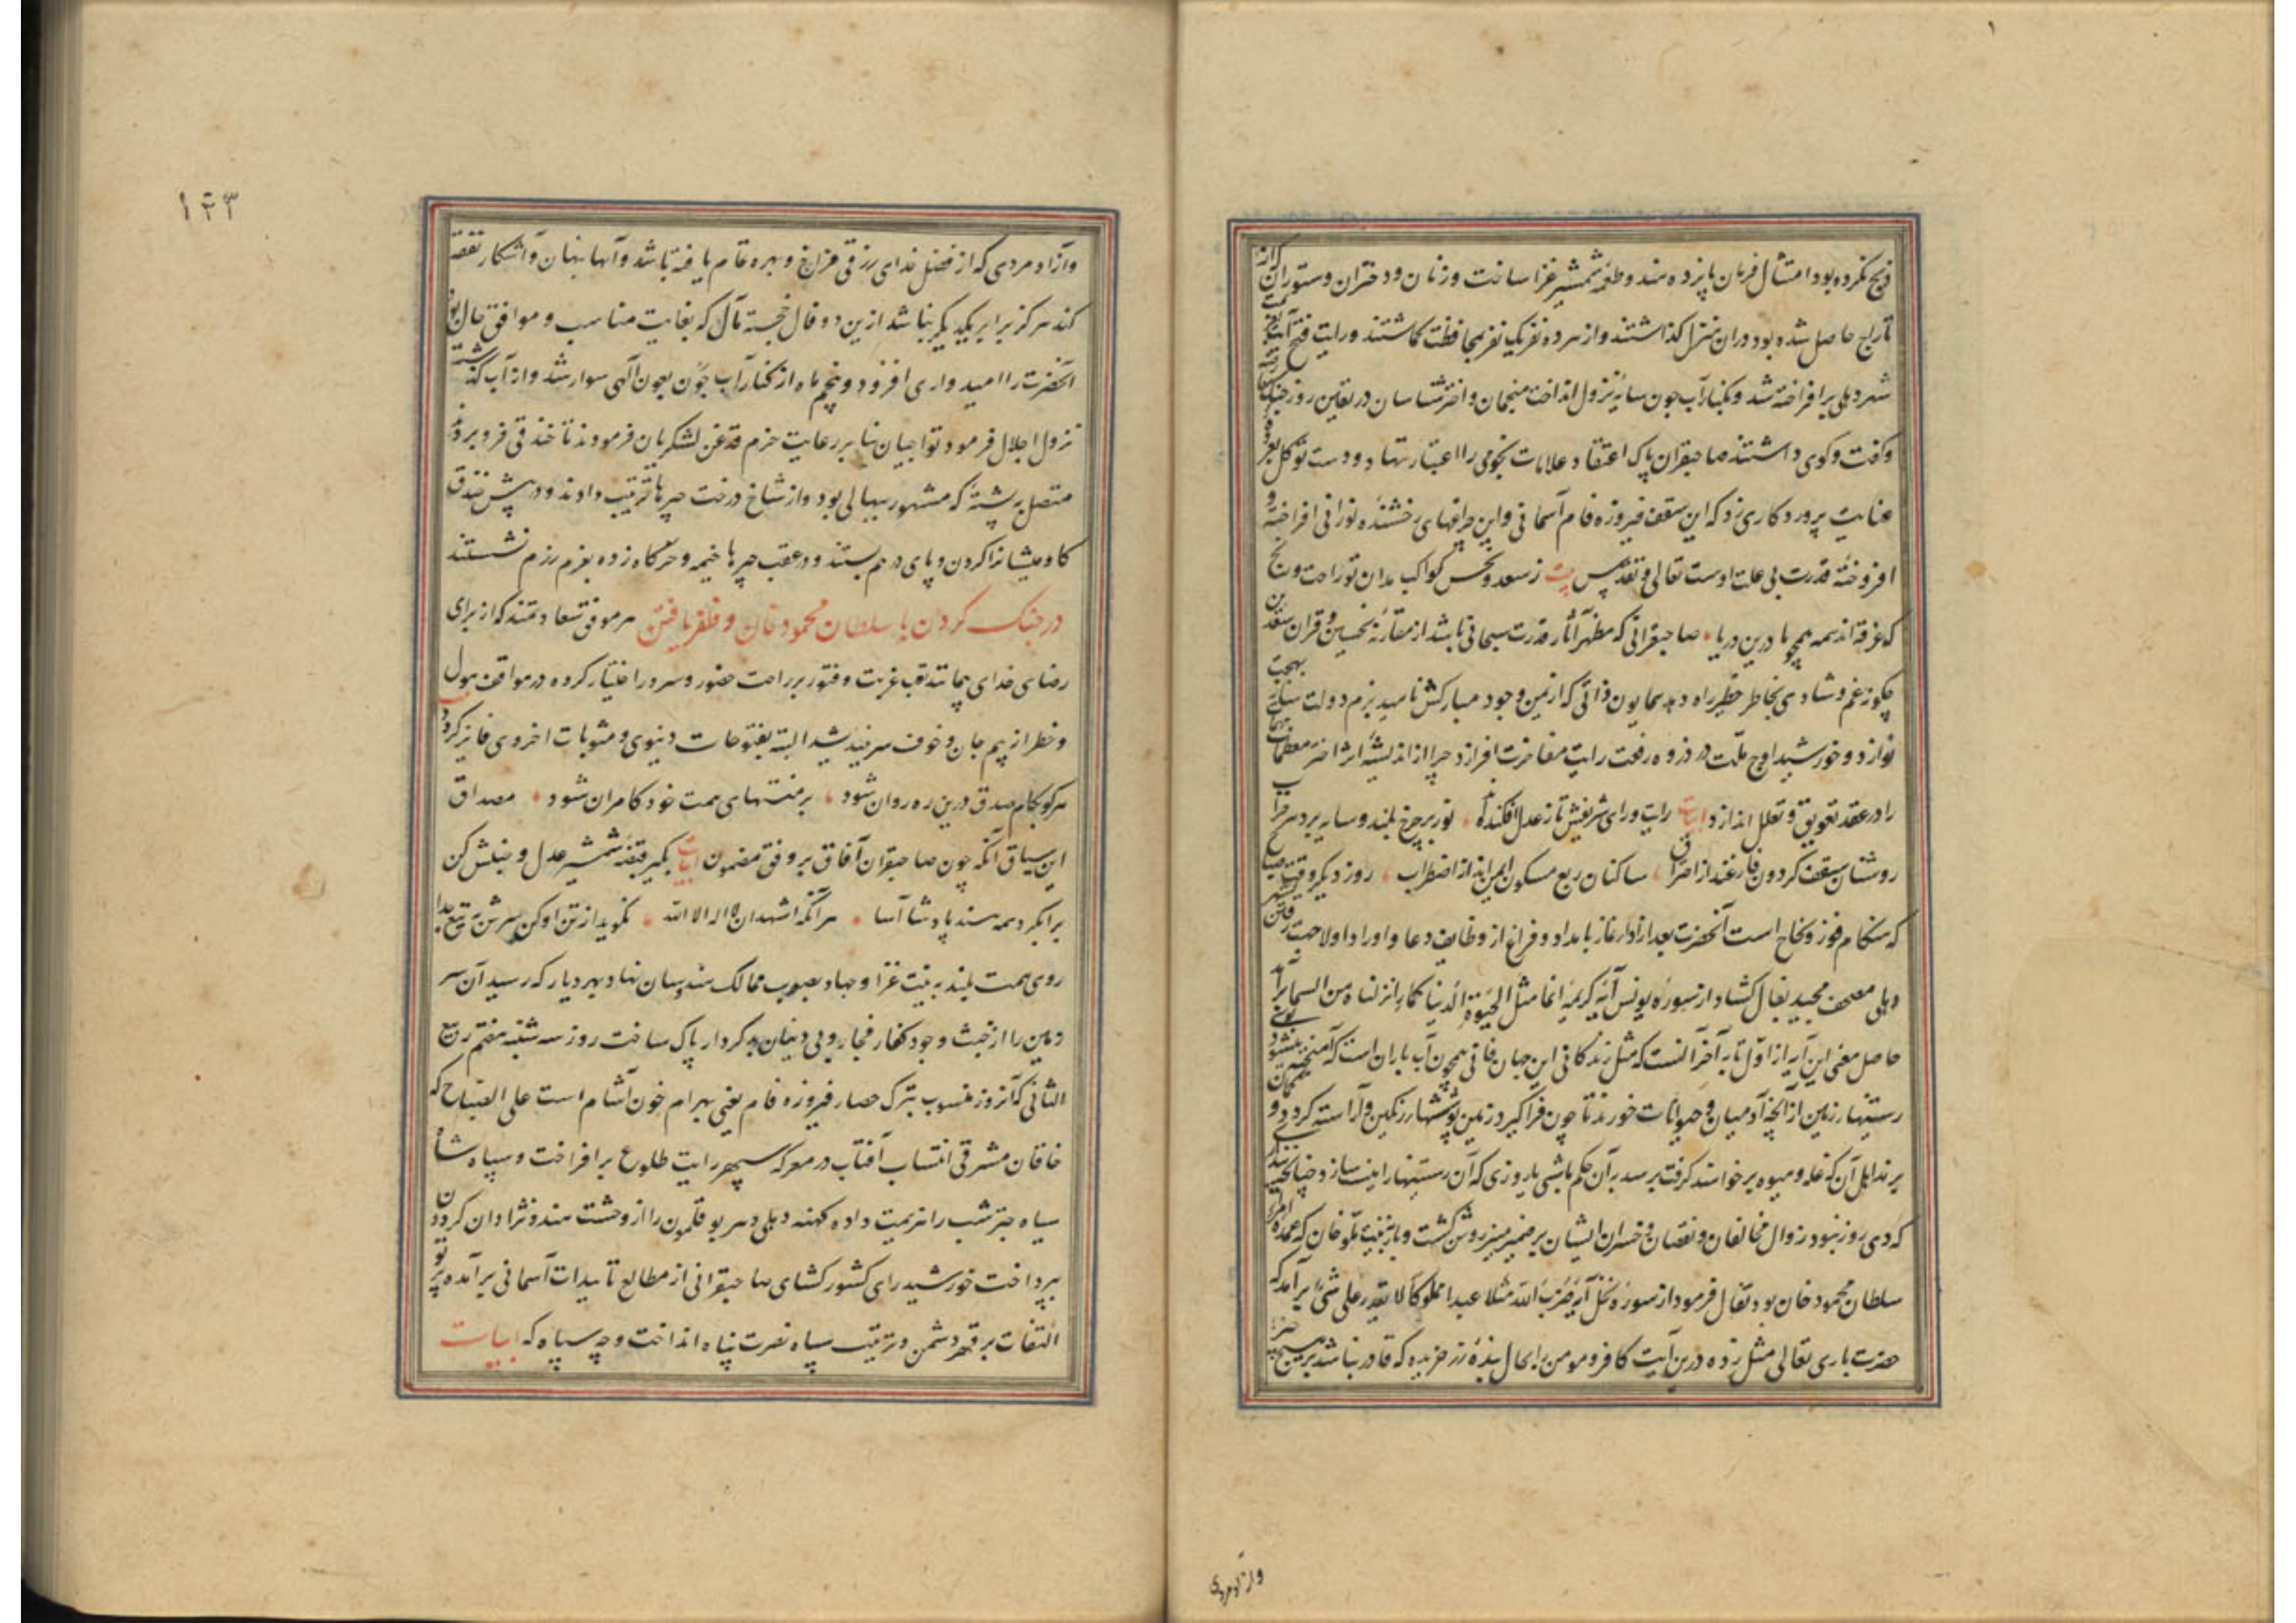 تاراج حاصل شده بود دران منزل گذاشتند و از هر ده نفر یک نفر بمحافظت گماشتند و رایت فتح آیت
شهر دهلی برافراخته شد و بکنار آب جون سایه نزول انداخت منجمان و اخترشناسان در تعین روز جنک
و کفت و کوی داشتند صاحبقران پاک اعتقاد علامات نجومی را اعتبار ننهاد و دست توکل
عنایت پروردکاری زد که این سقف فیروزه فام آسمانی و این چراغهای رخشنده نورانی افراخته و
افروخته قدرت بی علت اوست تعالی و تقدس بیت ز سعد و نحس کواکب مدان تو راحت و رنج
که غرقه اند همه همچو ما درین دریا صاحبقرانی که مظهر آثار قدرت سبحانی باشد از مقارنه نحسین و قران سعدین
چکونه غم و شادی بخاطر خطیر راه دهد همایون ذاتی که از یمن وجود مبارکش ناهید بزم دولت
نوازد و خورشید اوج ملت در ذروه رفعت رایت مفاخرت افرازد چرا از اندیشه اثر اختر
را در عقد تعویق و تعلل اندازد ابیات رایت و رای شریفش تا ز عدل افکنده اند نور بر چرخ بلند و سایه بر
روشنان سقف کردون فارغند از احتراق ساکنان ربع مسکون ایمن اند از اضطراب روز دیگر وقت صباح
که هنکام فوز و نجاح است آنحضرت بعد از ادا نماز بامداد و فراغ از وظایف دعا و اوراد اولا جهت
دهلی مصحف مجید بفال کشاد از سوره یونس آیه کریمه انما مثل الحیوة الدنیا کماء انزلناه من السماء برآمد
حاصل معنی این آیه از اول تا به آخر آنست که مثل زندکانی این جهان فانی همچون آب باران است که آمیخته میشود
رستنیها زمین از آنچه آدمیان و حیوانات خورند تا چون فراگیرد زمین پوششها رنکین و آراسته کردد و
برند اهل آن که غله و میوه برخواهند کرفت برسد به آن حکم ما بشبی یا روزی که آن رستنیها را نیست سازد چنانچه
که دی روز نبود زوال مخالفان و نقصان و خسران ایشان بر ضمیر منیر روشن کشت و باز به نیت ملو خان که عمده امراء
سلطان محمود خان بود تفأل فرمود از سوره نحل آیه ضرب الله مثلا عبدا مملوکا لا یقدر علی شئ برآمد که
حضرت باری تعالی مثل زده درین آیت کافر و مومن را بحال بنده زر خریده که قادر نباشد بر هیچ چیز
وآزاد مردی
۱۲۳
وآزاد مردی که از فضل خدای رزقی فراخ و بهره تمام یافته باشد و آنها پنهان و آشکار نفقه
کند هرکز برابر یکدیکر نباشد ازین دو فال خجسته مآل که بغایت مناسب و موافق حال بود
آنحضرت را امیدواری افزود و پنجم ماه از کنار آب جون بعون آلهی سوار شد و از آب کذشته
نزول اجلال فرمود تواجیان بنا بر رعایت حزم قدغن لشکریان فرمودند تا خندقی فرو بردند
متصل پشته که مشهور بهالی بود و از شاخ درخت چپرها ترتیب دادند و در پیش خندق
کاومیشانرا کردن و پای در هم بستند و در عقب چپرها خیمه و خرکاه زده بعزم رزم نشستند
در جنک کردن با سلطان محمود خان و ظفر یافتن هر موفق سعادتمند که از برای
رضای خدای بیمانند تعب غربت و فتور بر راحت حضور و سرور اختیار کرده در مواقف هول
و خطر از بیم جان و خوف سر نیندیشد البته بفتوحات دنیوی و مثوبات اخروی فایز کردد
هر کو بکام صدق درین ره روان شود بر منتهای همت خود کامران شود مصداق
این سیاق آنکه چون صاحبقران آفاق بر وفق مضمون ابیات بکیر قبضه شمشیر عدل و جنبش کن
برا بکرد همه هند پادشا آسا هر آنکه اشهد ان لا اله الا الله نکوید از تن او کن سرش به تیغ جدا
روی همت بلند به نیت غزا و جهاد بصوب ممالک هندوستان نهاد و بهر دیار که رسید آن سر
زمین را از خبث وجود کفار فجار و بی دینان بدکردار پاک ساخت روز سه شنبه هفتم ربیع
الثانی که آنروز منسوب بترک حصار فیروزه فام یعنی بهرام خون آشام است علی الصباح که
خاقان مشرقی انتساب آفتاب در معرکه سپهر رایت طلوع برافراخت و سپاه شاه
سیاه چتر شب را هزیمت داده کهنه دهلی دهر بوقلمون را از وحشت هندونژادان کردون
بپرداخت خورشید رای کشورکشای صاحبقرانی از مطالع تاییدات آسمانی برآمده پرتو
التفات بر قهر دشمن و ترتیب سپاه نصرت پناه انداخت و چه سپاه که ابیات